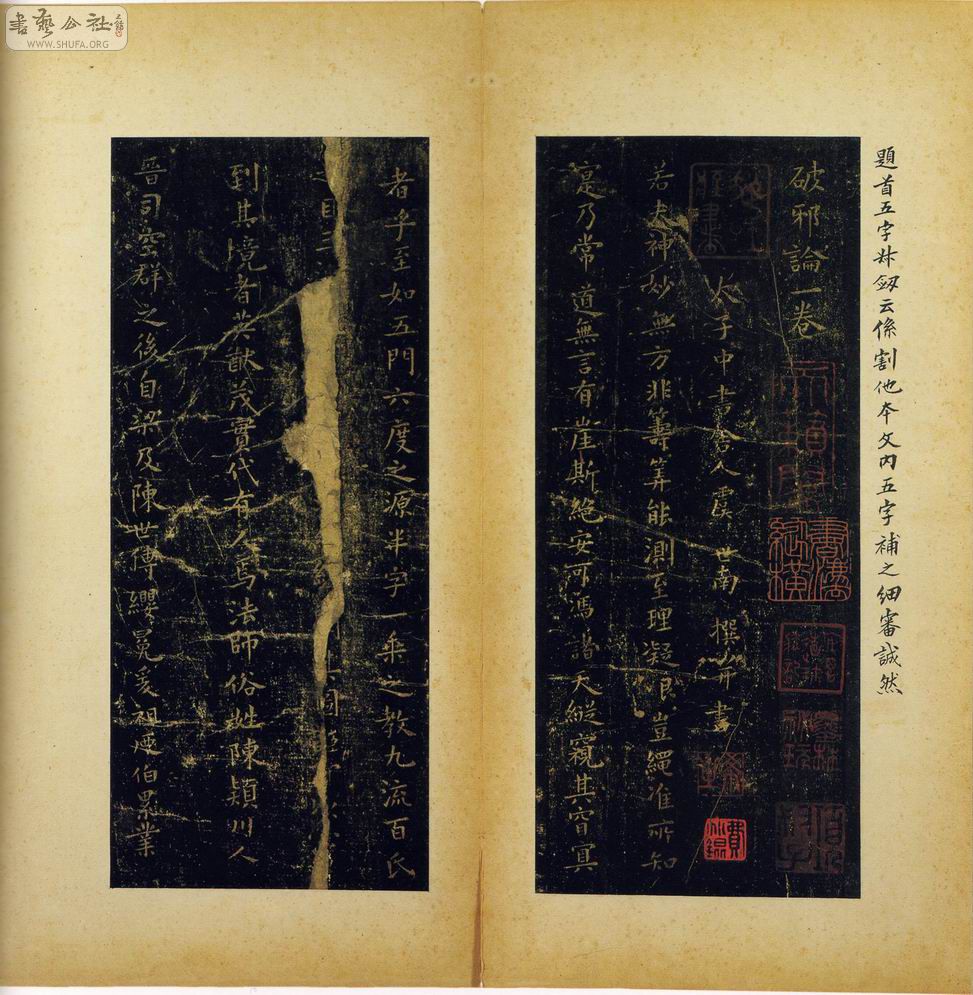 書藝公社
WWW.SHUFA.ORG
題首五字云係割他本文內五字補之細審誠然
破邪論一卷
太子中書舍人虞世南撰并書
若夫神妙無方非籌筭能測至理凝邈豈繩准所知
寔乃常道無言有崖斯絕安可馮諸天縱窺其窅冥
者乎至如五門六度之源半字一乘之教九流百氏
之目三
到其境者英猷茂實代有人焉法師俗姓陳潁川人
晉司空群之後自梁及陳世傳纓冕爰祖伯累業